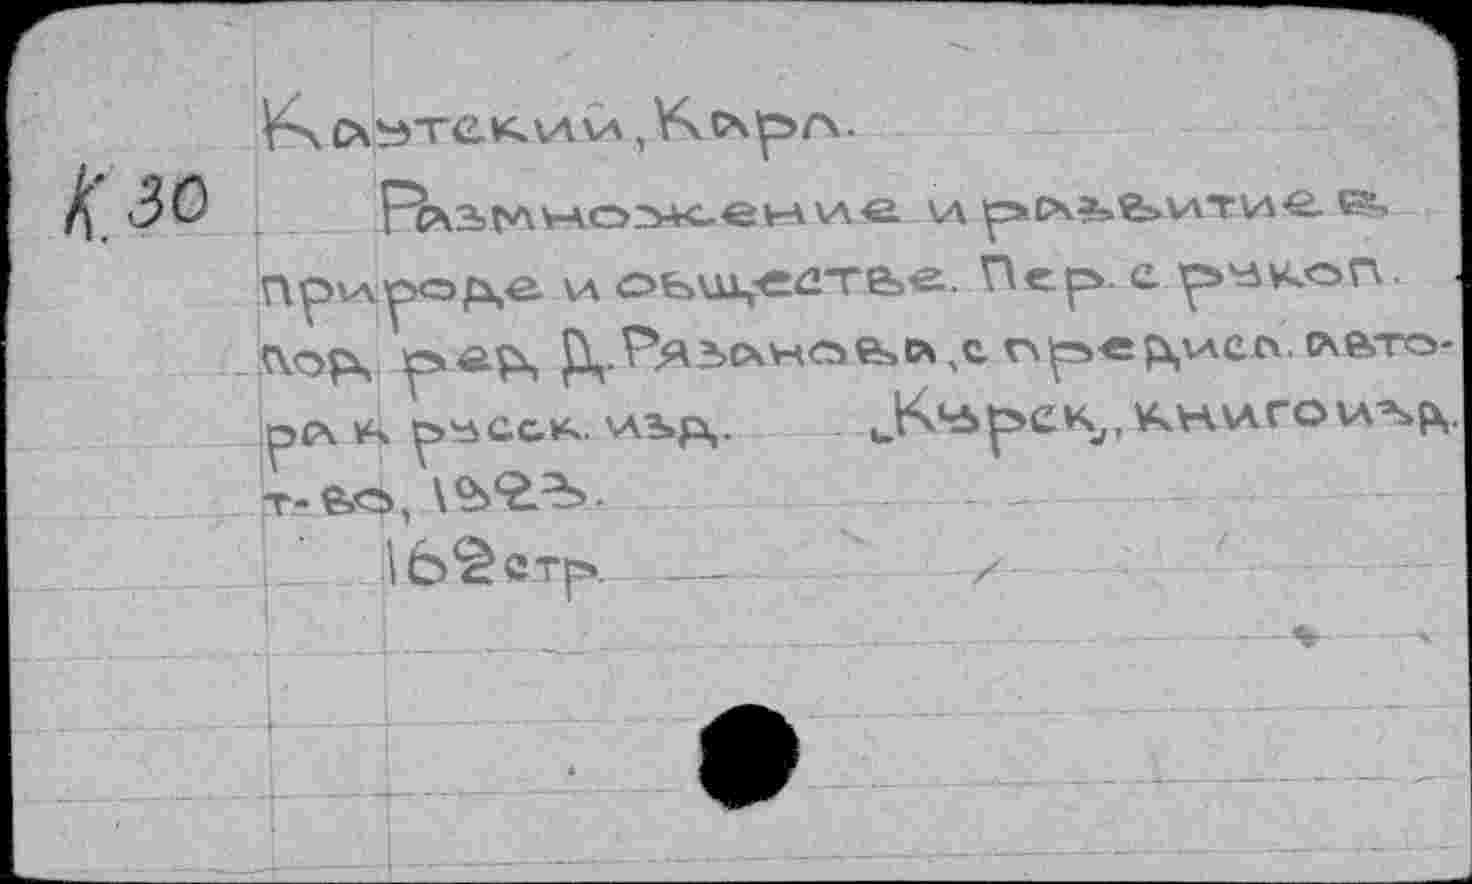 Каутский, Карл.
К. 30
Размножение и развитие в
природе и обществе. Пер. с рукоп.
под ред Д. Рязанова, с предисл. авто-
ра к русск. изд. [Курск], книгоизд.
т-во, 1923.
162 стр.